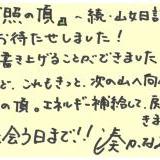 照の頂』～続・山女日記
お待たせしました！
書き上げることができました
ど、これもきっと、次の山へ向
の頂。エネルギー補給して、戻
きま
会う日まで!! 湊かなえ